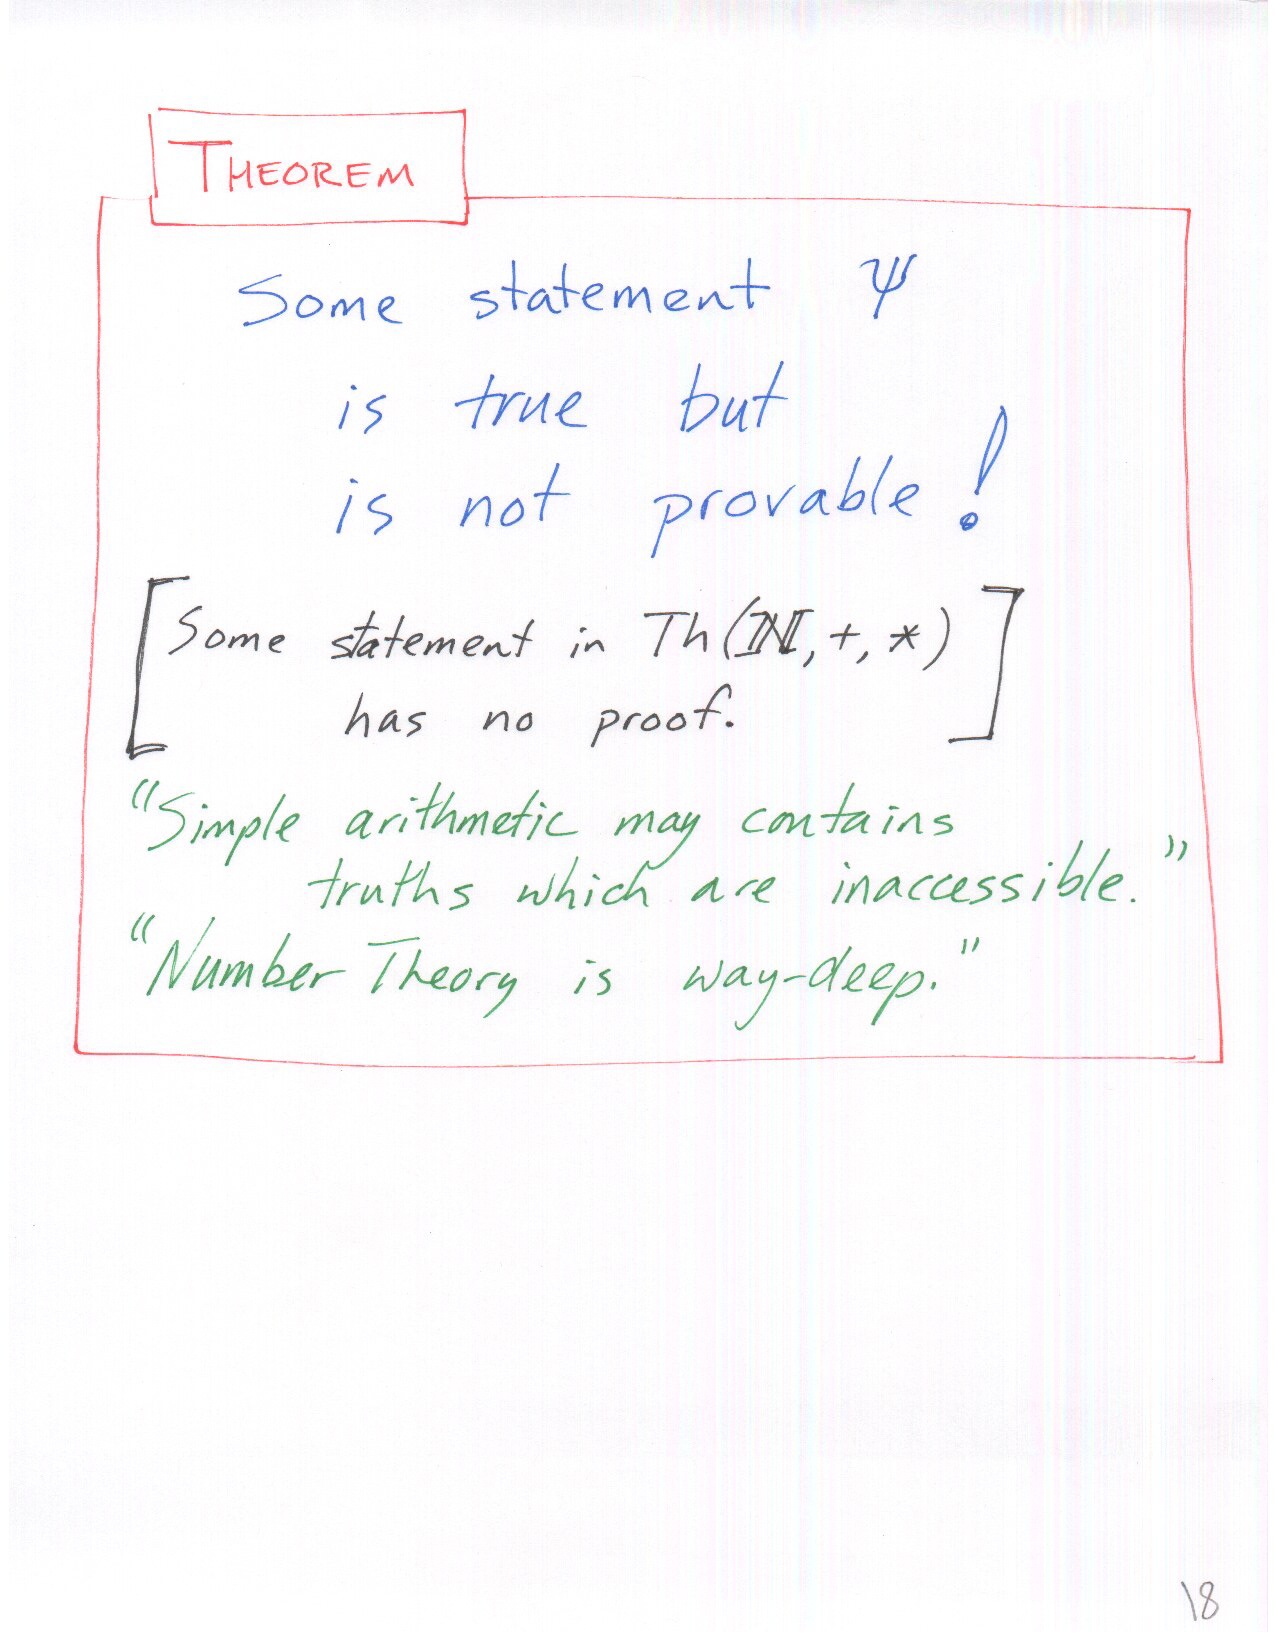 THEOREM
Some statement Ψ
is true but
is not provable!
[Some statement in Th(ℕ, +, *)
has no proof.]
"Simple arithmetic may contains
truths which are inaccessible."
"Number Theory is way-deep."
18